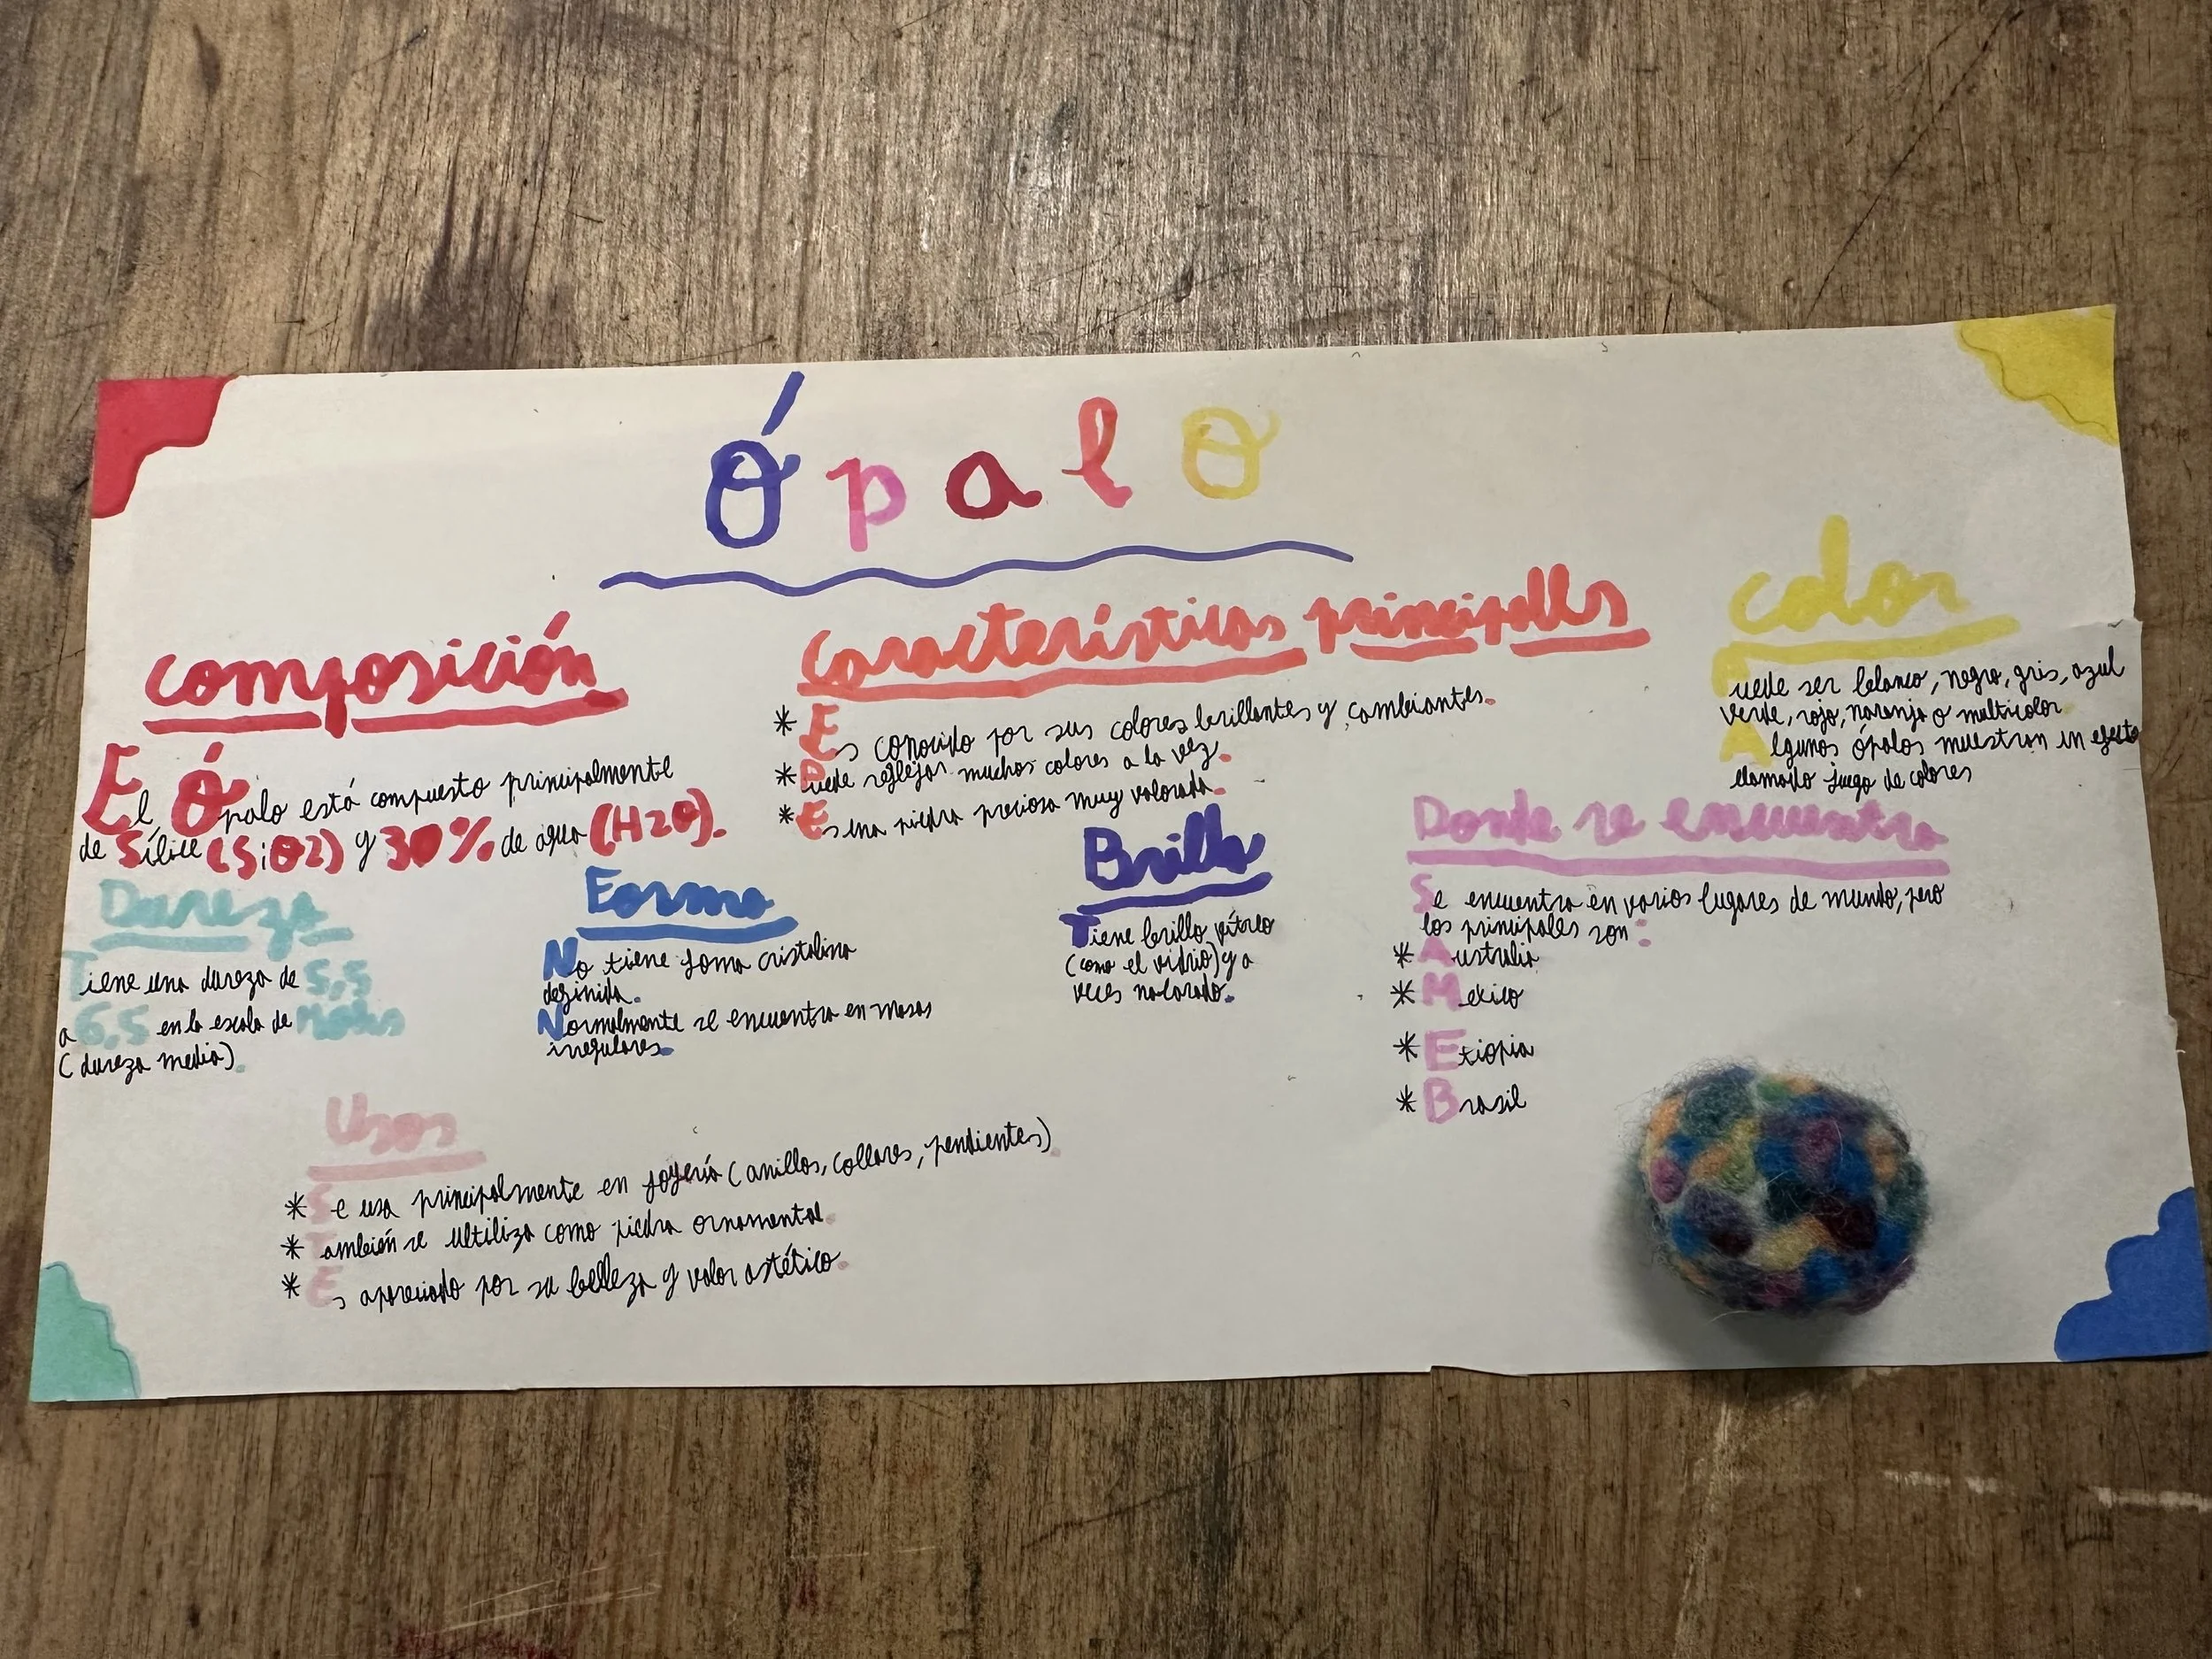 Ópalo
composición
El Ópalo está compuesto principalmente
de Sílice (SiO2) y 30% de agua (H2O).
Características principales
* Es conocido por sus colores brillantes y cambiantes.
* Puede reflejar muchos colores a la vez.
* Es una piedra preciosa muy valorada.
color
Puede ser blanco, negro, gris, azul
verde, rojo, naranja o multicolor
Algunos ópalos muestran un efecto
llamado juego de colores
Dureza
Tiene una dureza de 5,5
a 6,5 en la escala de Mohs
(dureza media).
Forma
No tiene forma cristalina
definida.
Normalmente se encuentra en masas
irregulares.
Brillo
Tiene brillo vítreo
(como el vidrio) y a
veces nacarado.
Donde se encuentra
Se encuentra en varios lugares de mundo, pero
los principales son:
* Australia
* Mexico
* Etiopia
* Brasil
Usos
* Se usa principalmente en joyería (anillos, collares, pendientes).
* También se ultiliza como piedra ornamental.
* Es apreciado por su belleza y valor estético.